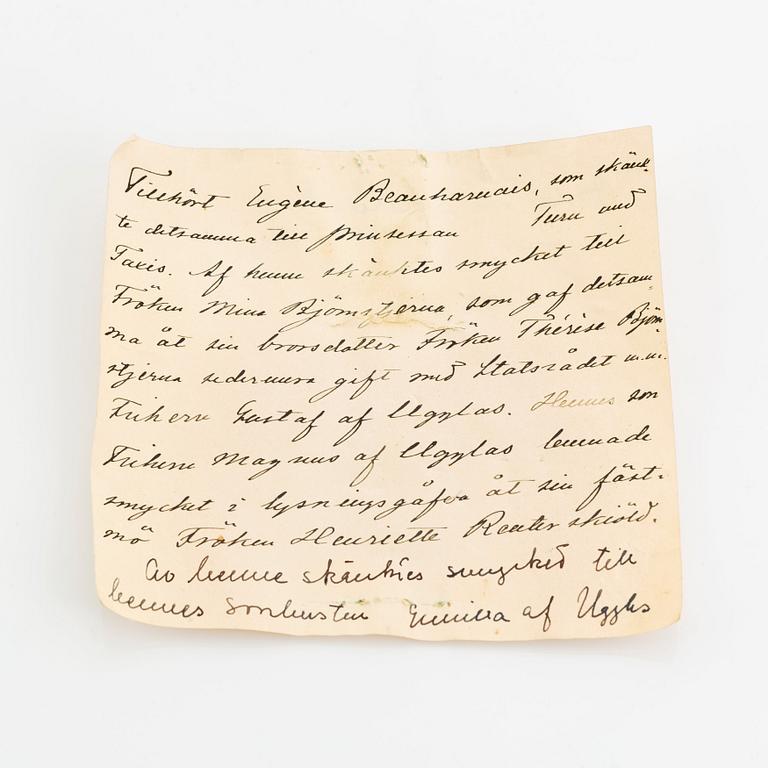 Tillhört Eugène Beauharnais, som skänk-
te detsamma till prinsessan Turn und
Taxis. Af henne skänktes smycket till
Fröken Mina Björnstjerna, som gaf detsam-
ma åt sin brorsdotter Fröken Thérèse Björn-
stjerna sedermera gift med Statsrådet m.m.
Friherre Gustaf af Ugglas. Hennes son
Friherre Magnus af Ugglas lemnade
smycket i lysningsgåfva åt sin fäst-
mö Fröken Henriette Reuterskiöld.
Av henne skänktes smycket till
hennes sonhustru Gunilla af Ugglas